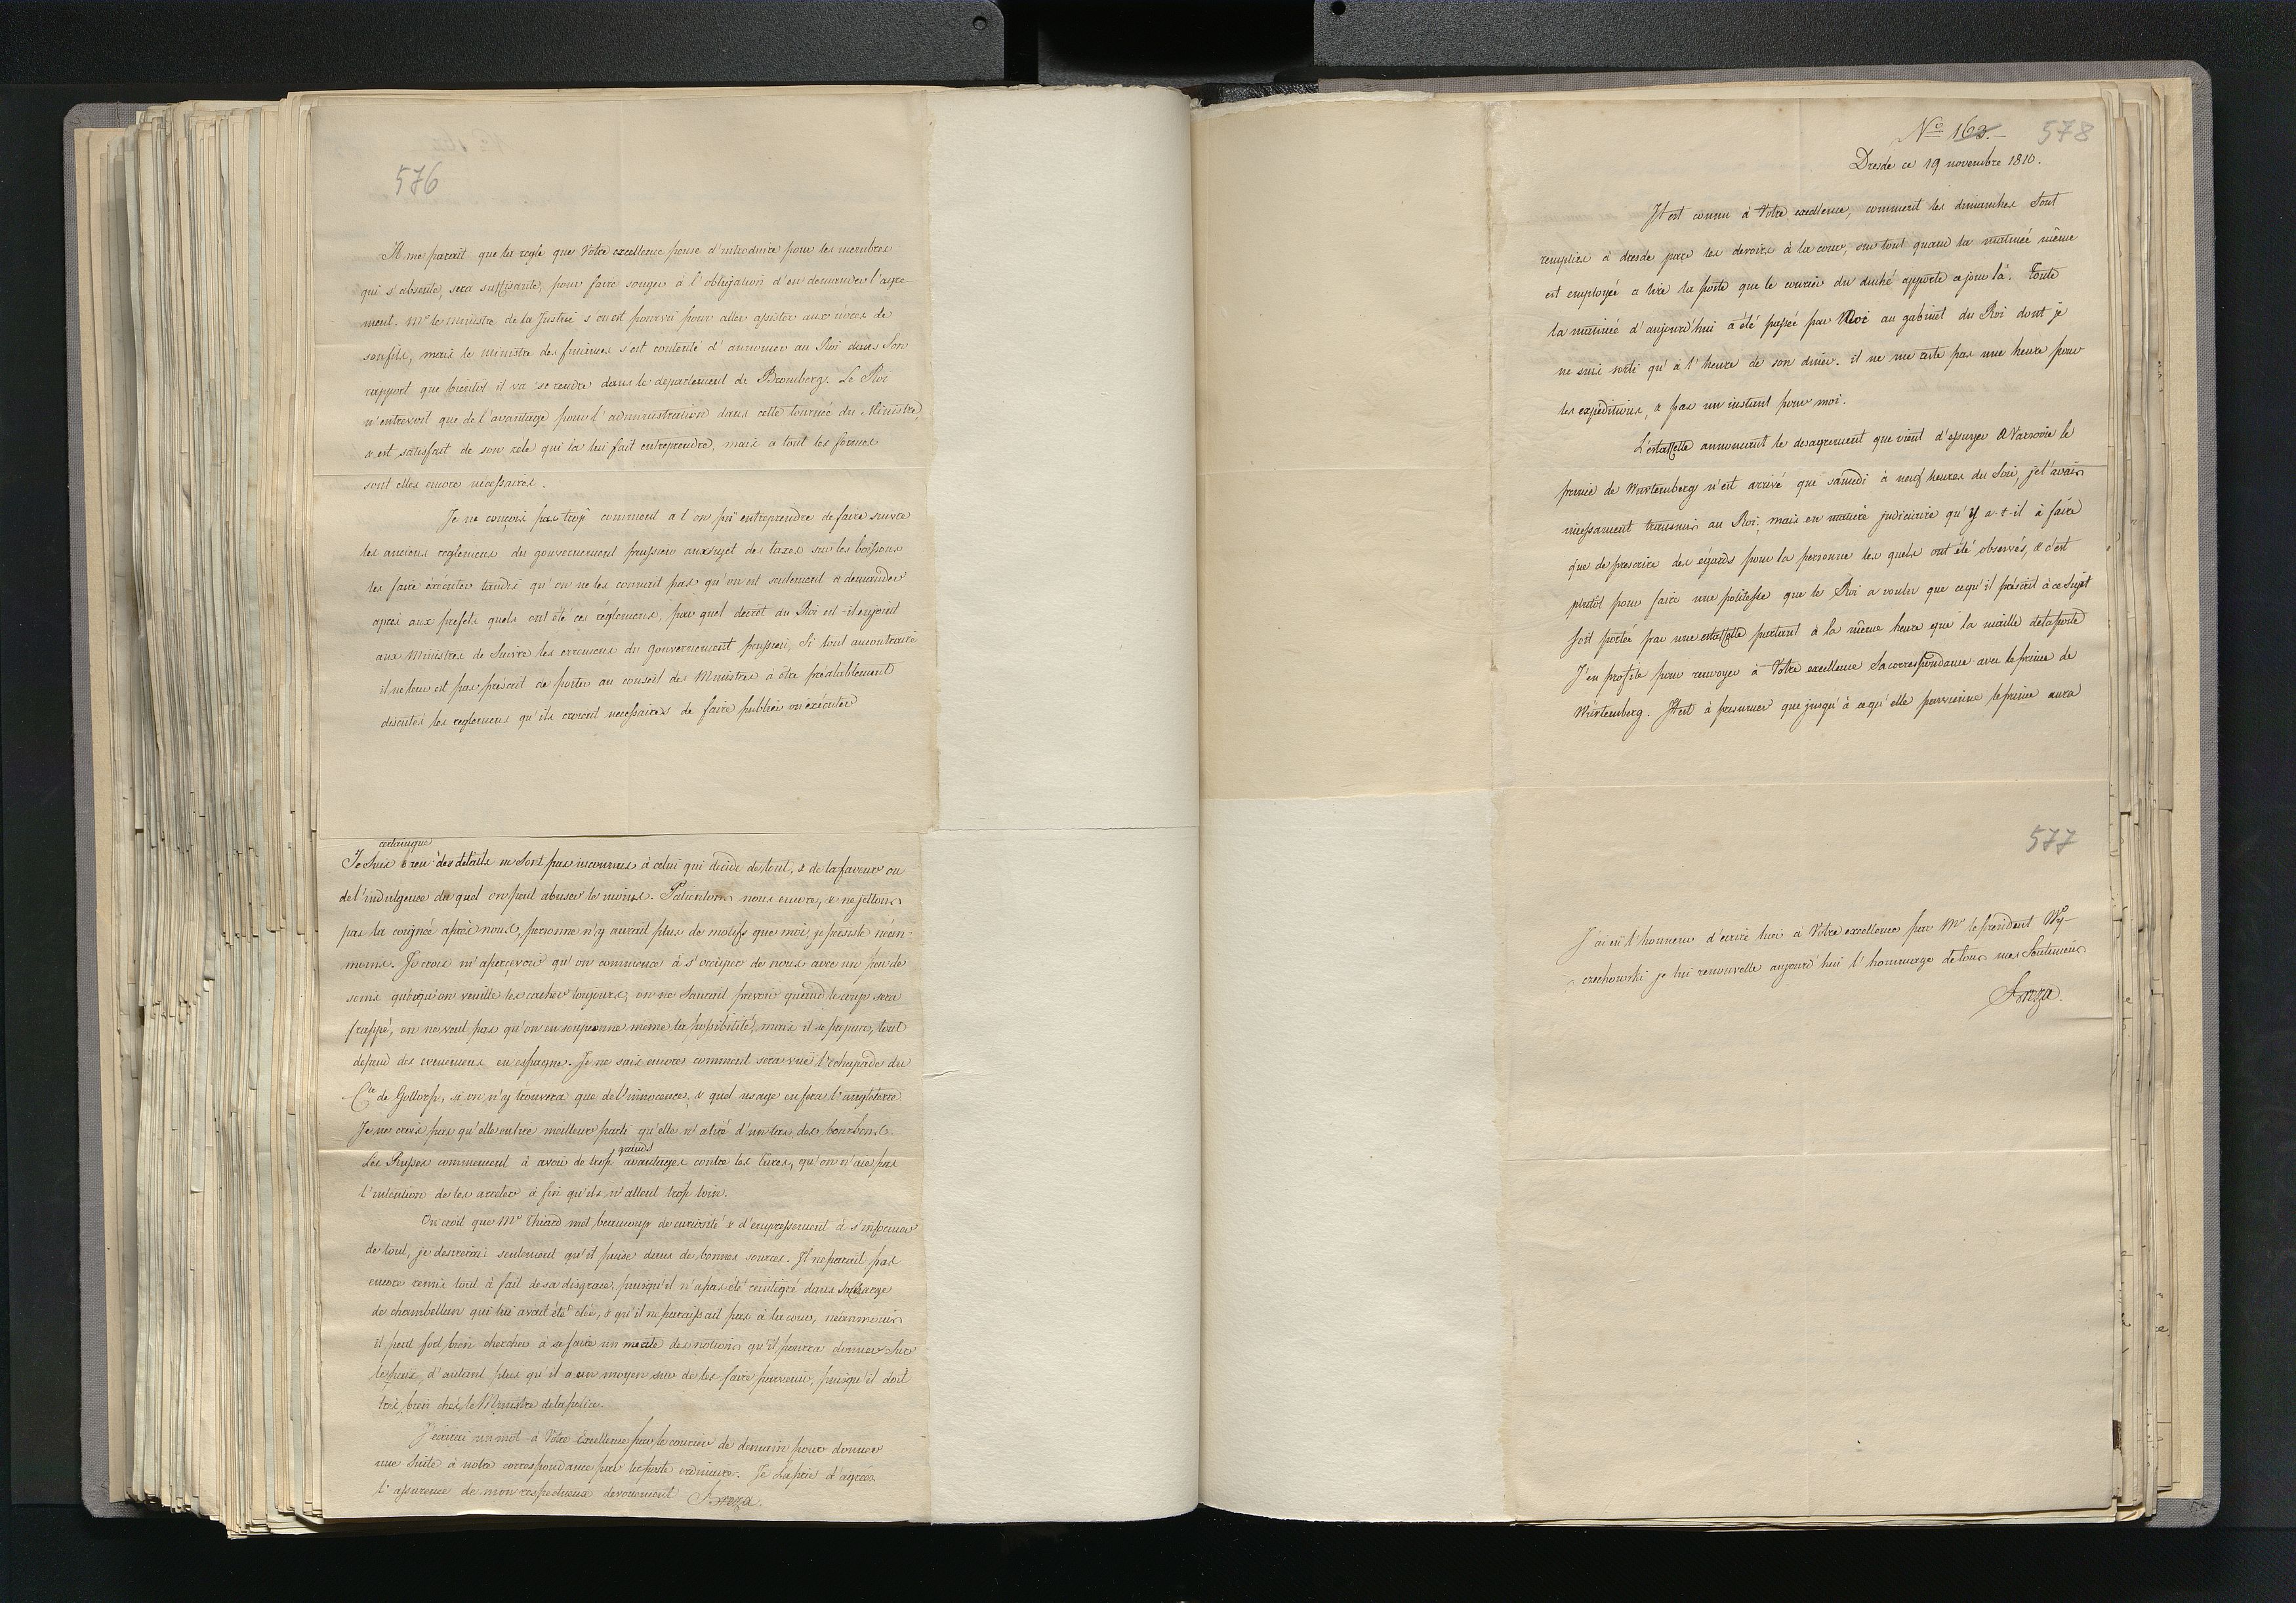 576
Il me parait que la regle que Votre excellence pense d'introduire pour les membres
qui s'absente, sera suffisante, pour faire songer à l'obligation d'en demander l'agre-
ment. Mr le ministre de la Justice s'en est pourvû pour aller assister aux nôces de
son fils, mais le ministre des finances s'est contenté d'annoncer au Roi dans Son
rapport que bientôt il va se rendre dans le departement de Bromberg. Le Roi
n'entrevoit que de l'avantage pour l'administration dans cette tournée du Ministre,
& est satisfait de son zele qui la lui fait entreprendre, mais a tout les formes
sont elles encore necessaires.
Je ne conçois pas trop comment a t'on pû entreprendre de faire suivre
les anciens reglemens du gouvernement prussien au sujet de taxes sur les boissons
les faire éxécuter tandis qu'on ne les connait pas qu'on est seulement à demander
après aux prefets quels ont été ces réglemens, par quel decret du Roi est-il enjoint
aux Ministres de Suivre les erremens du gouvernement prussien, Si tout au contraire
il ne leur est pas préscrit de porter au conseil des Ministres à être préalablement
discutés les reglemens qu'ils croient necessaires de faire publier ou exécuter
certain que
Je suis des details ne Sont pas inconnus à celui qui decide de tout, & de la faveur ou
de l'indulgence du quel on peut abuser le moins. Patientons nous encore, & ne jettons
pas la coignée après nous, personne n'y aurait plus de motifs que moi, je persiste néan-
moins. Je crois m'apercevoir qu'on commence à s'occuper de nous avec un peu de
soins quoiqu'on veuille les cacher toujours, on ne Saurait prevoir quand le coup sera
frappé, on ne veut pas qu'on en soupçonne même la possibilité, mais il se prepare, tout
depend des evenemens en espagne. Je ne sais encore comment sera vuë l'echapade du
Cte de Gottorp, si on n'y trouvera que de l'innocence, & quel usage en fera l'angleterre.
Je ne crois pas qu'elle en tire meilleur parti qu'elle n'a tiré d'un tas des bourbons.
grands
Les Russes commencent à avoir de trop avantages contre les turcs, qu'on n'aie pas
l'intention de les arreter à fin qu'ils n'aillent trop loin.
On croit que Mr Thiard met beaucoup de curiosité & d'empressement à s'informer
de tout, je desirerais seulement qu'il puise dans de bonnes sources. Il ne parait pas
encore remis tout à fait de sa disgrace, puisqu'il n'a pas été reintégré dans Sa charge
de chambellan qui lui avait été otée, & qu'il ne paraissait pas à la cour, néanmoins
il peut fort bien chercher à se faire un merite des notions qu'il pourra donner Sur
le païs, d'autant plus qu'il a un moyen sur de les faire parvenir, puisqu'il doit
très bien chés le Ministre de la police.
J'écrirai un mot à Votre Excellence par le courier de demain pour donner
une Suite à notre correspondance par la poste ordinaire. Je La prie d'agréer
l'assurence de mon respectueux devouement Breza.
No 162.
578
Dresde ce 19 novembre 1810.
Il est connu à Votre excellence, comment les dimanches Sont
remplies à dresde par les devoirs à la cour, sur tout quand la matinée même
est employée a lire la poste que le courier du duché apporte ce jour là. Toute
la matinée d'aujourd'hui a été passée par Moi au gabinet du Roi dont je
ne suis sorti qu'à l'heure de son diner. il ne me reste pas une heure pour
les expeditions, & pas un instant pour moi.
L'estaffette annoncant le desagrement que vient d'essuyer à Varsovie le
prince de Wurtemberg n'est arrivé que samedi à neuf heures du Soir, je l'avais
incessament transmis au Roi, mais en matière judiciaire qu'y a-t-il à faire
que de prescrire des égards pour la personne les quels ont été observés, & c'est
plutôt pour faire une politesse que le Roi a voulu que ce qu'il préscrit à ce Sujet
soit portée par une estaffette partant à la même heure que la maille de la poste
J'en profite pour renvoyer à Votre excellence Sa correspondance avec le prince de
Würtemberg. Il est à presumer que jusqu'à ce qu'elle parvienne le prince aura
577
J'ai eü l'honneur d'ecrire hier à Votre excellence par Mr le president Wy-
-czechowski je lui renouvelle aujourd'hui l'hommage de tous mes Sentimens
Breza.